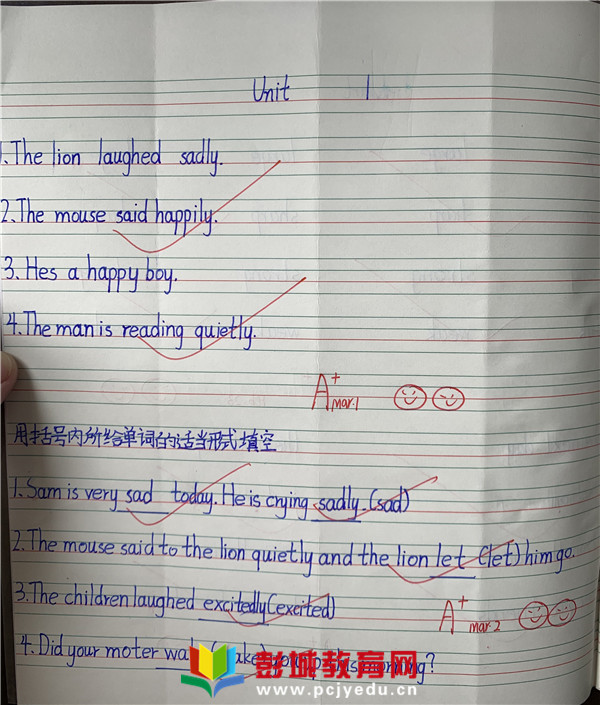 Unit 1
1. The lion laughed sadly.
2. The mouse said happily.
3. Hes a happy boy.
4. The man is reading quietly.
A+ mar.1
用括号内所给单词的适当形式填空
1. Sam is very sad today. He is crying sadly. (sad)
2. The mouse said to the lion quietly and the lion let (let) him go.
3. The children laughed excitedly (excited)
A+ mar.2
4. Did your moter this morning?
彭城教育网
www.pcjyedu.cn